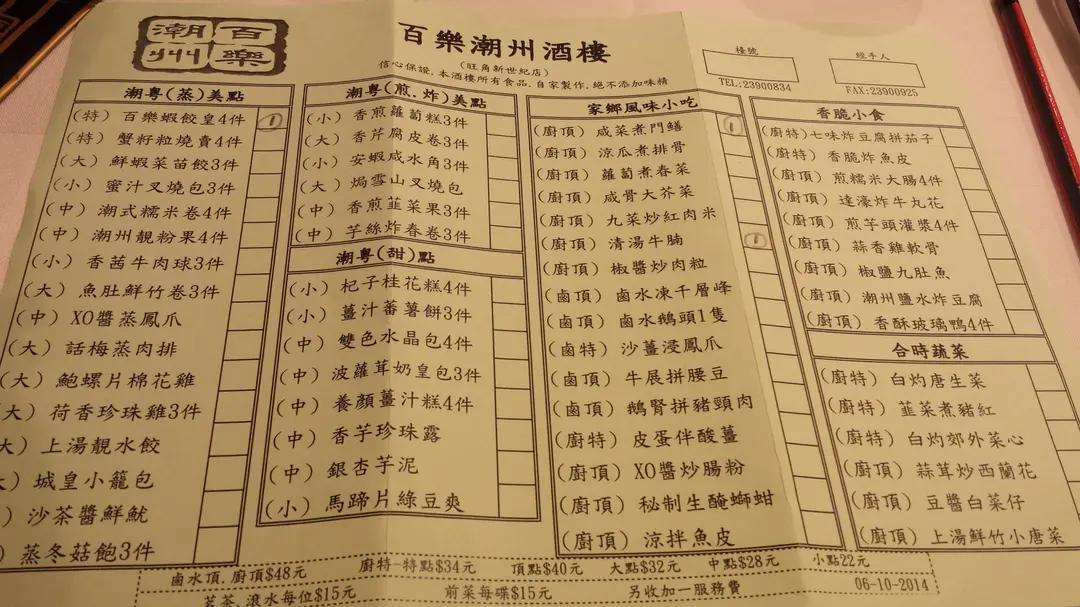 潮百
州樂
百樂潮州酒樓
(旺角新世紀店)
信心保證,本酒樓所有食品,自家製作,絕不添加味精
檯號
TEL:23900834
經手人
FAX:23900925
潮粵(蒸)美點
(特) 百樂蝦餃皇4件 ①
(特) 蟹籽粒燒賣4件
(大) 鮮蝦菜苗餃3件
(小) 蜜汁叉燒包3件
(中) 潮式糯米卷4件
(中) 潮州靚粉果4件
(小) 香茜牛肉球3件
(大) 魚肚鮮竹卷3件
(中) XO醬蒸鳳爪
(大) 話梅蒸肉排
(大) 鮑螺片棉花雞
大) 荷香珍珠雞3件
大) 上湯靚水餃
) 城皇小籠包
) 沙茶醬鮮魷
) 蒸冬菇飽3件
潮粵(煎.炸)美點
(小) 香煎蘿蔔糕3件
(大) 香芹腐皮卷3件
(小) 安蝦咸水角3件
(大) 焗雪山叉燒包
(中) 香煎韮菜果3件
(中) 芋絲炸春卷3件
潮粵(甜)點
(小) 杞子桂花糕4件
(小) 薑汁蕃薯餅3件
(中) 雙色水晶包4件
(中) 波蘿茸奶皇包3件
(中) 養顏薑汁糕4件
(中) 香芋珍珠露
(中) 銀杏芋泥
(小) 馬蹄片綠豆爽
家鄉風味小吃
(廚頂) 咸菜煮門鱔 ①
(廚頂) 涼瓜煮排骨
(廚頂) 蘿蔔煮春菜
(廚頂) 咸骨大芥菜
(廚頂) 九菜炒紅肉米
(廚頂) 清湯牛腩 ①
(廚頂) 椒醬炒肉粒
(鹵頂) 鹵水凍千層峰
(鹵頂) 鹵水鵝頭1隻
(鹵特) 沙薑浸鳳爪
(鹵頂) 牛展拼腰豆
(鹵頂) 鵝腎拼豬頸肉
(廚特) 皮蛋伴酸薑
(廚頂) XO醬炒腸粉
(廚頂) 秘制生醃螄蚶
(廚頂) 涼拌魚皮
香脆小食
(廚特)七味炸豆腐拼茄子
(廚特) 香脆炸魚皮
(廚頂) 煎糯米大腸4件
(廚頂) 達濠炸牛丸花
(廚頂) 煎芋頭灌漿4件
(廚頂) 蒜香雞軟骨
(廚頂) 椒鹽九肚魚
(廚頂) 潮州鹽水炸豆腐
(廚頂) 香酥玻璃鴨4件
合時蔬菜
(廚特) 白灼唐生菜
(廚特) 韮菜煮豬紅
(廚特) 白灼郊外菜心
(廚頂) 蒜茸炒西蘭花
(廚頂) 豆醬白菜仔
(廚頂) 上湯鮮竹小唐菜
鹵水頂,廚頂$48元 廚特-特點$34元 頂點$40元 大點$32元 中點$28元 小點22元
茗茶,滾水每位$15元 前菜每碟$15元 另收加一服務費 06-10-2014